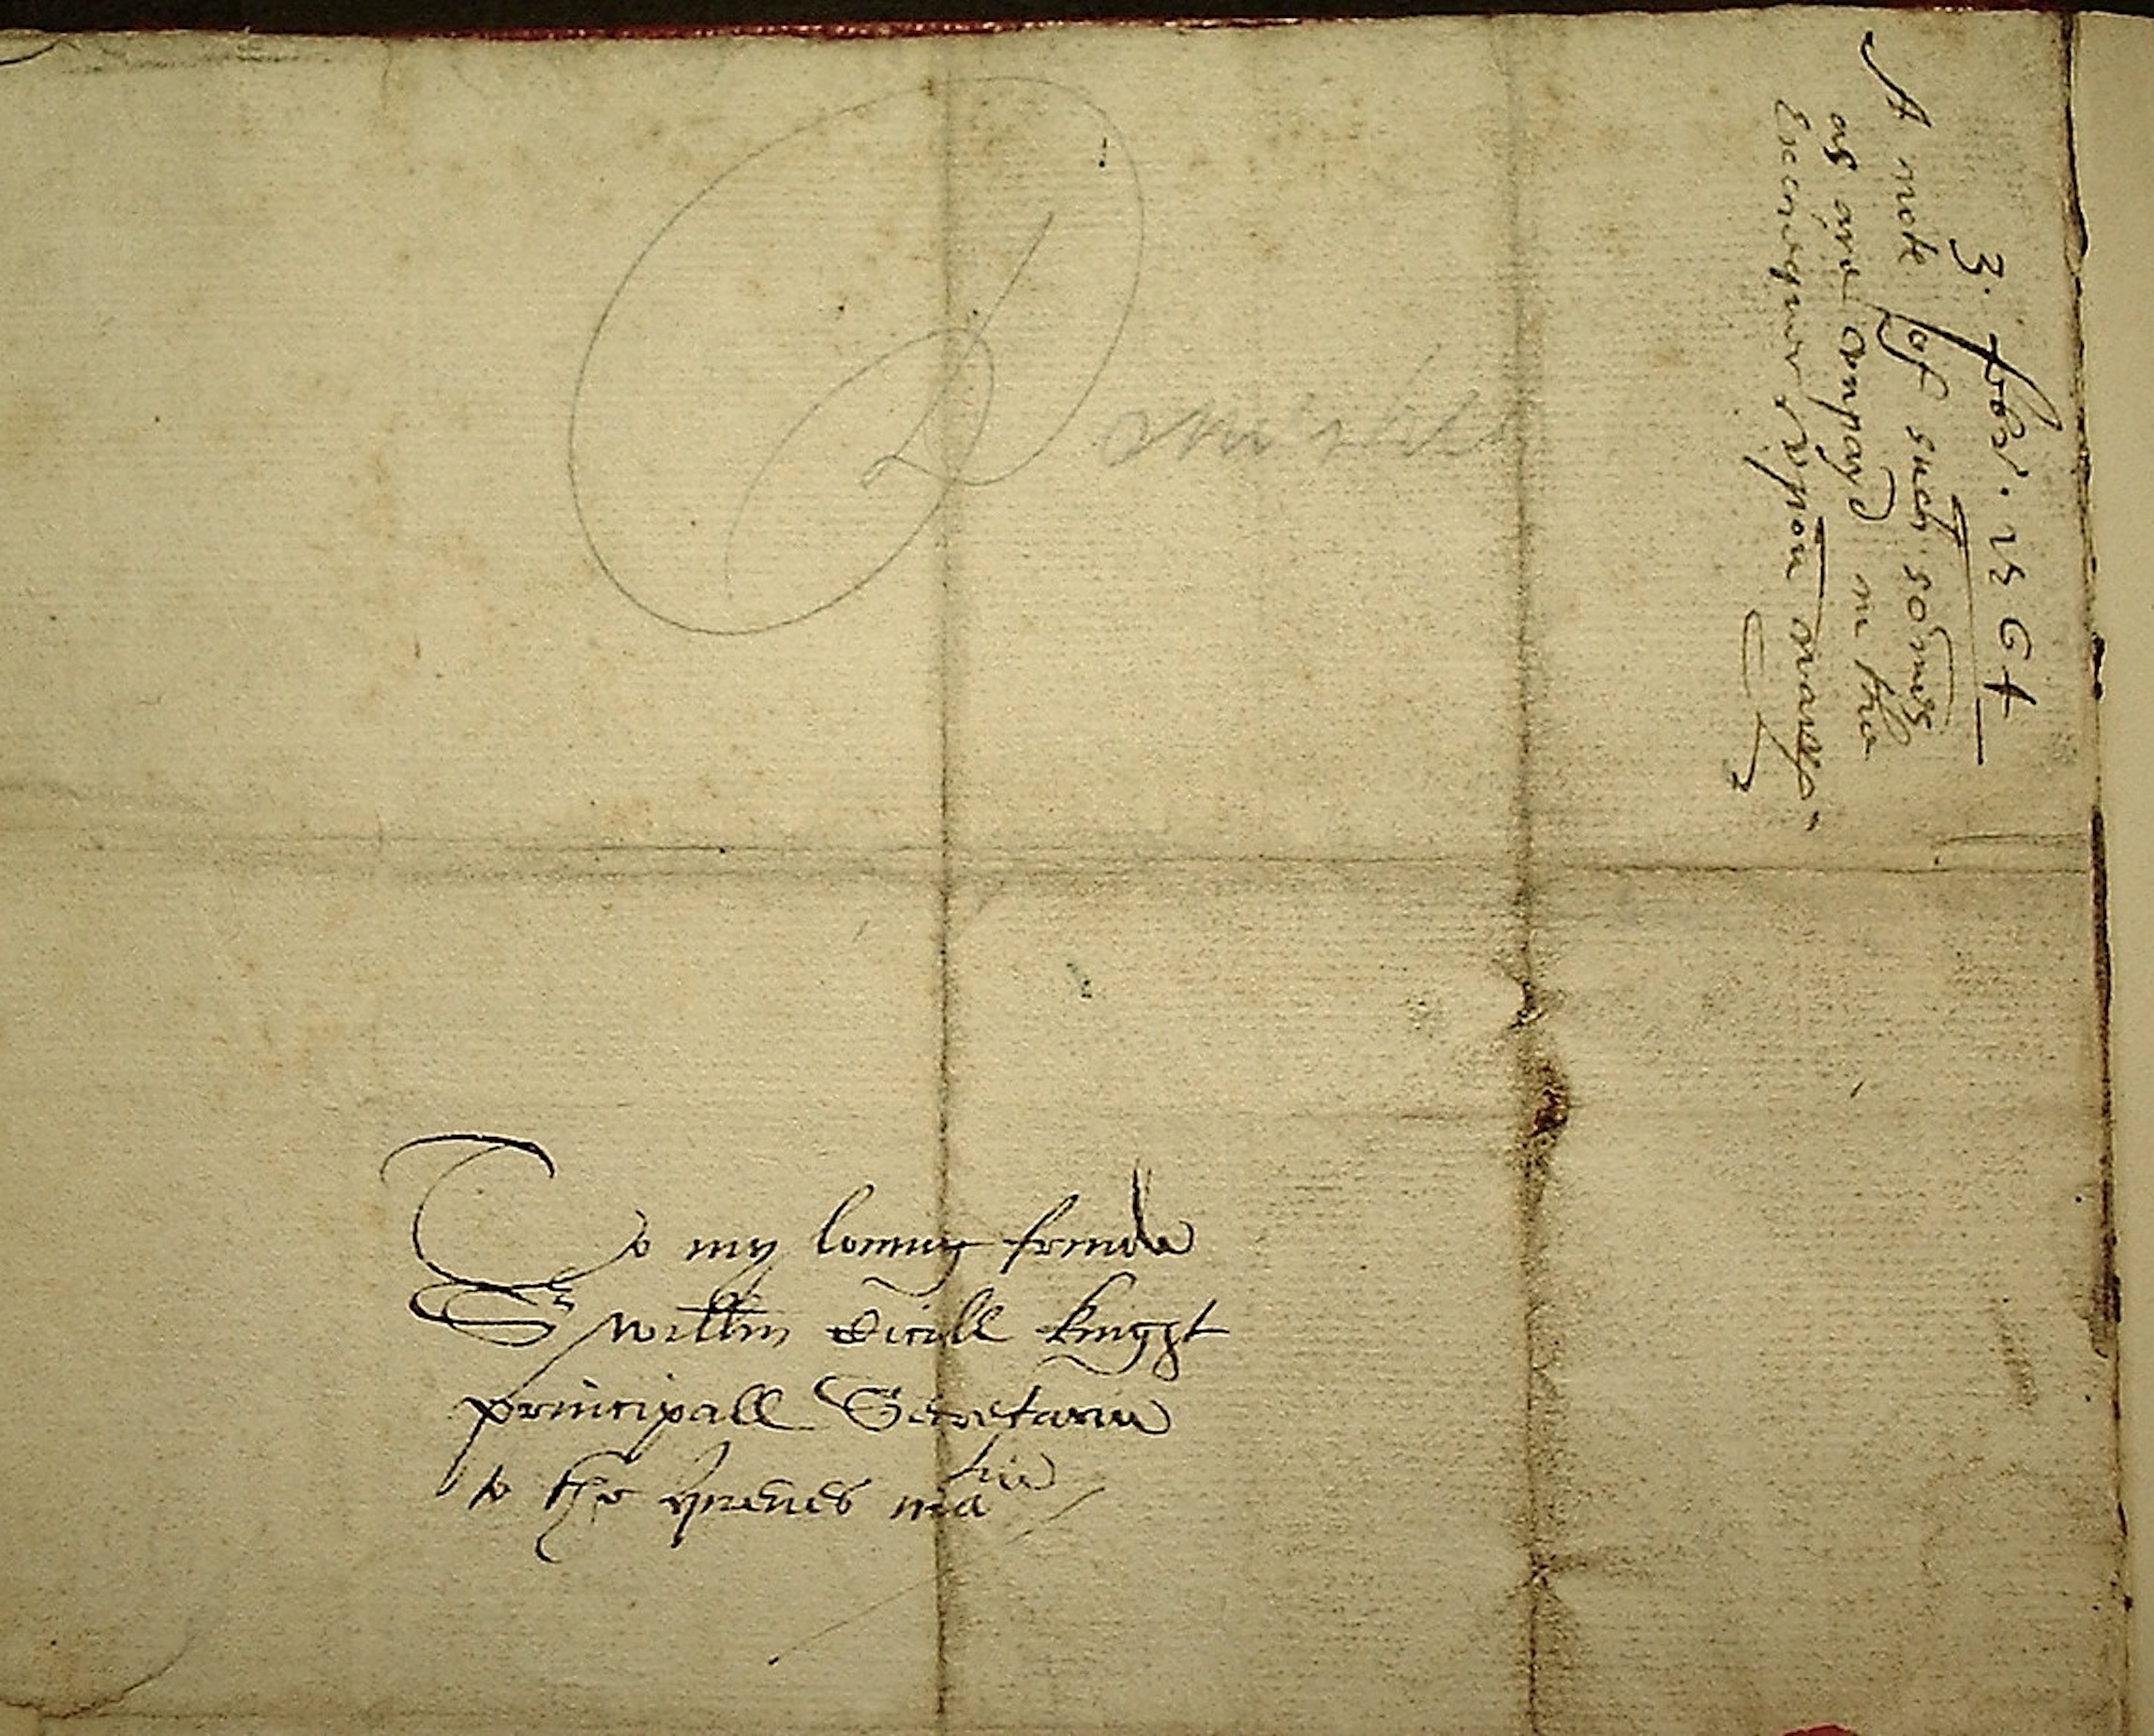 3. febr. 1564
A note of such somes
as are unpayd in the
Exchequer upon
Domestic
To my loving frende
Sr willm Cicill knight
principall Secretarie
to the quenes matie